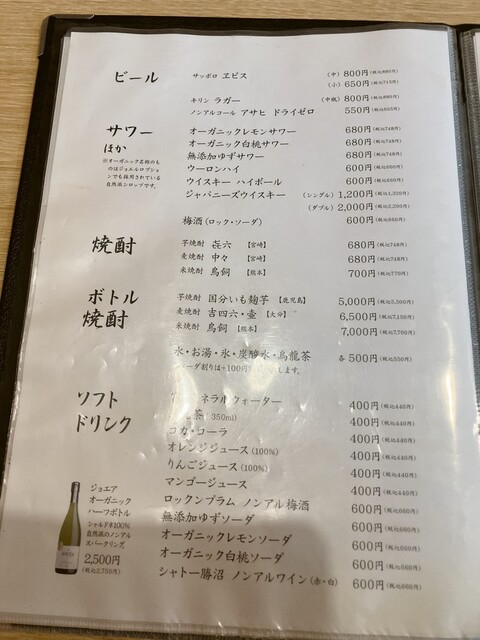 ビール
サッポロ ヱビス (中) 800円(税込880円)
(小) 650円(税込715円)
キリン ラガー (中瓶) 800円(税込880円)
ノンアルコール アサヒ ドライゼロ 550円(税込605円)
サワー
ほか
※オーガニック名称のも
のはジョエルロブション
でも採用されている
自然派シロップです。
オーガニックレモンサワー 680円(税込748円)
オーガニック白桃サワー 680円(税込748円)
無添加ゆずサワー 680円(税込748円)
ウーロンハイ 600円(税込660円)
ウイスキー ハイボール 600円(税込660円)
ジャパニーズウイスキー (シングル) 1,200円(税込1,320円)
(ダブル) 2,000円(税込2,200円)
梅酒(ロック・ソーダ) 600円(税込660円)
焼酎
芋焼酎 㐂六 【宮崎】 680円(税込748円)
麦焼酎 中々 【宮崎】 680円(税込748円)
米焼酎 鳥飼 【熊本】 700円(税込770円)
ボトル
焼酎
芋焼酎 国分いも麹芋 【鹿児島】 5,000円(税込5,500円)
麦焼酎 吉四六・壷 【大分】 6,500円(税込7,150円)
米焼酎 鳥飼 【熊本】 7,000円(税込7,700円)
水・お湯・氷・炭酸水・烏龍茶 各 500円(税込550円)
ーダ割りは+100円 します。
ソフト
ドリンク
ネラルウォーター 400円(税込440円)
茶 350ml) 400円(税込440円)
コカ・コーラ 400円(税込440円)
オレンジジュース(100%) 400円(税込440円)
りんごジュース(100%) 400円(税込440円)
マンゴージュース 400円(税込440円)
ロックンプラム ノンアル梅酒 600円(税込660円)
無添加ゆずソーダ 600円(税込660円)
オーガニックレモンソーダ 600円(税込660円)
オーガニック白桃ソーダ 600円(税込660円)
シャトー勝沼 ノンアルワイン(赤・白) 600円(税込660円)
ジョエア
オーガニック
ハーフボトル
シャルドネ100%
自然派のノンアル
スパークリング。
2,500円
(税込2,750円)